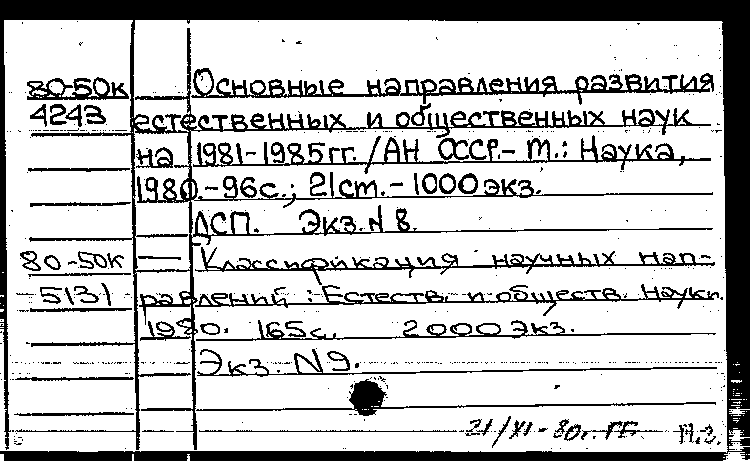 80-50к Основные направления развития
4243 естественных и общественных наук
на 1981-1985гг. /АН СССР.- М.: Наука,
1980.-96с.; 21см.-1000экз.
ДСП. Экз. N 8.
80-50к — Классификация научных нап-
5131 равлений: Естеств. и обществ. науки.
1980. 165с. 2000экз.
Экз. N9.
21/XI-80г.